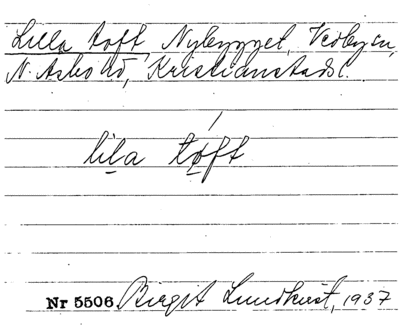 Lilla toft, Nybygget, Vedbyn,
N. Åsbo hd, Kristianstads l.
lila tøft
Nr 5506. Birgit Lundkvist, 1937